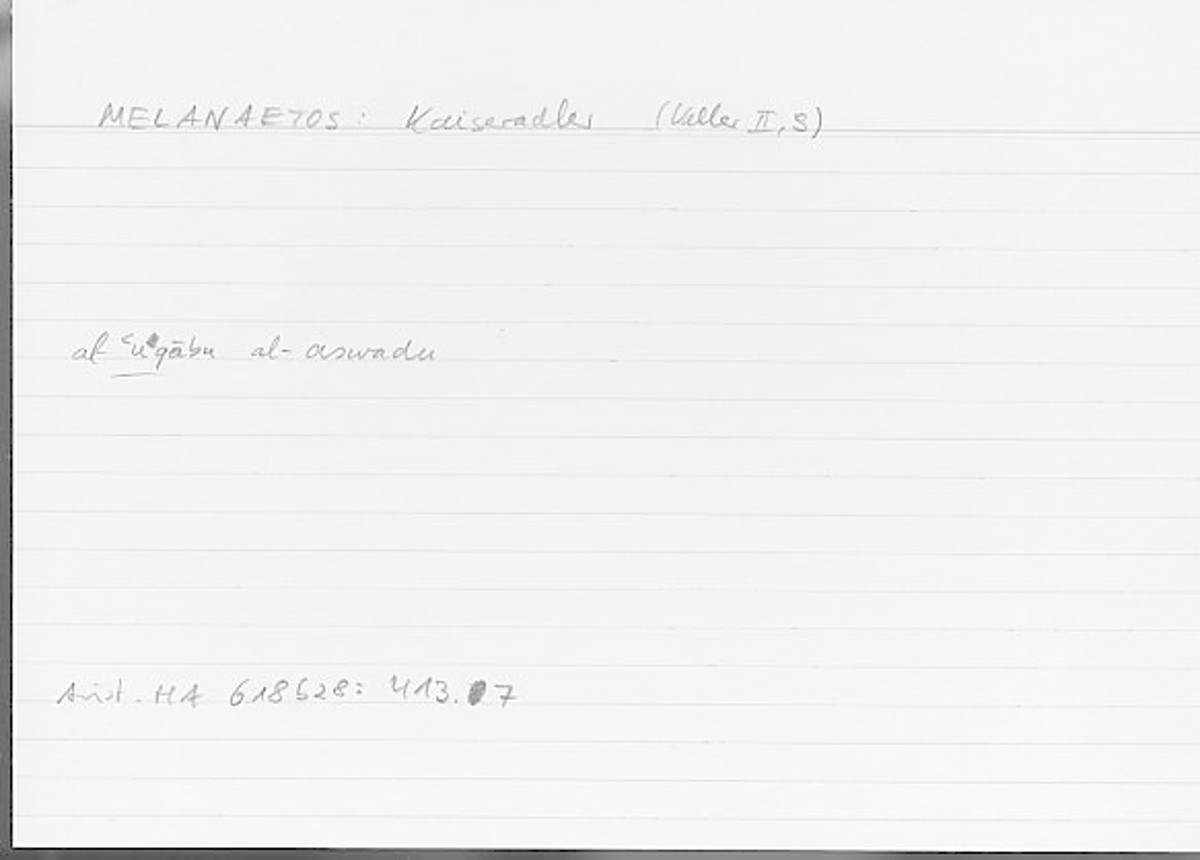 MELANAETOS: Kaiseradler (Keller II, S)
al ʿugābu al-aswadu
Arist. HA 618b28: 413.7